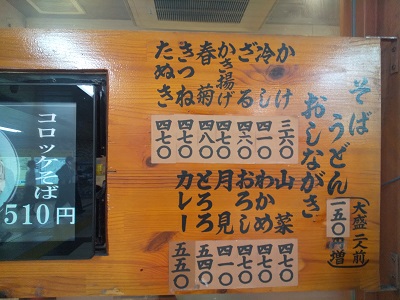 そば
うどん
おしながき
(大盛二人前
一五〇円増)
かけ 三六〇
冷し 四一〇
ざる 四六〇
かき揚げ 四七〇
春菊 四八〇
きつね 四七〇
たぬき 四七〇
山菜 四七〇
わかめ 四七〇
おろし 四七〇
月見 四一〇
とろろ 五四〇
カレー 五五〇
コロッケそば
510円